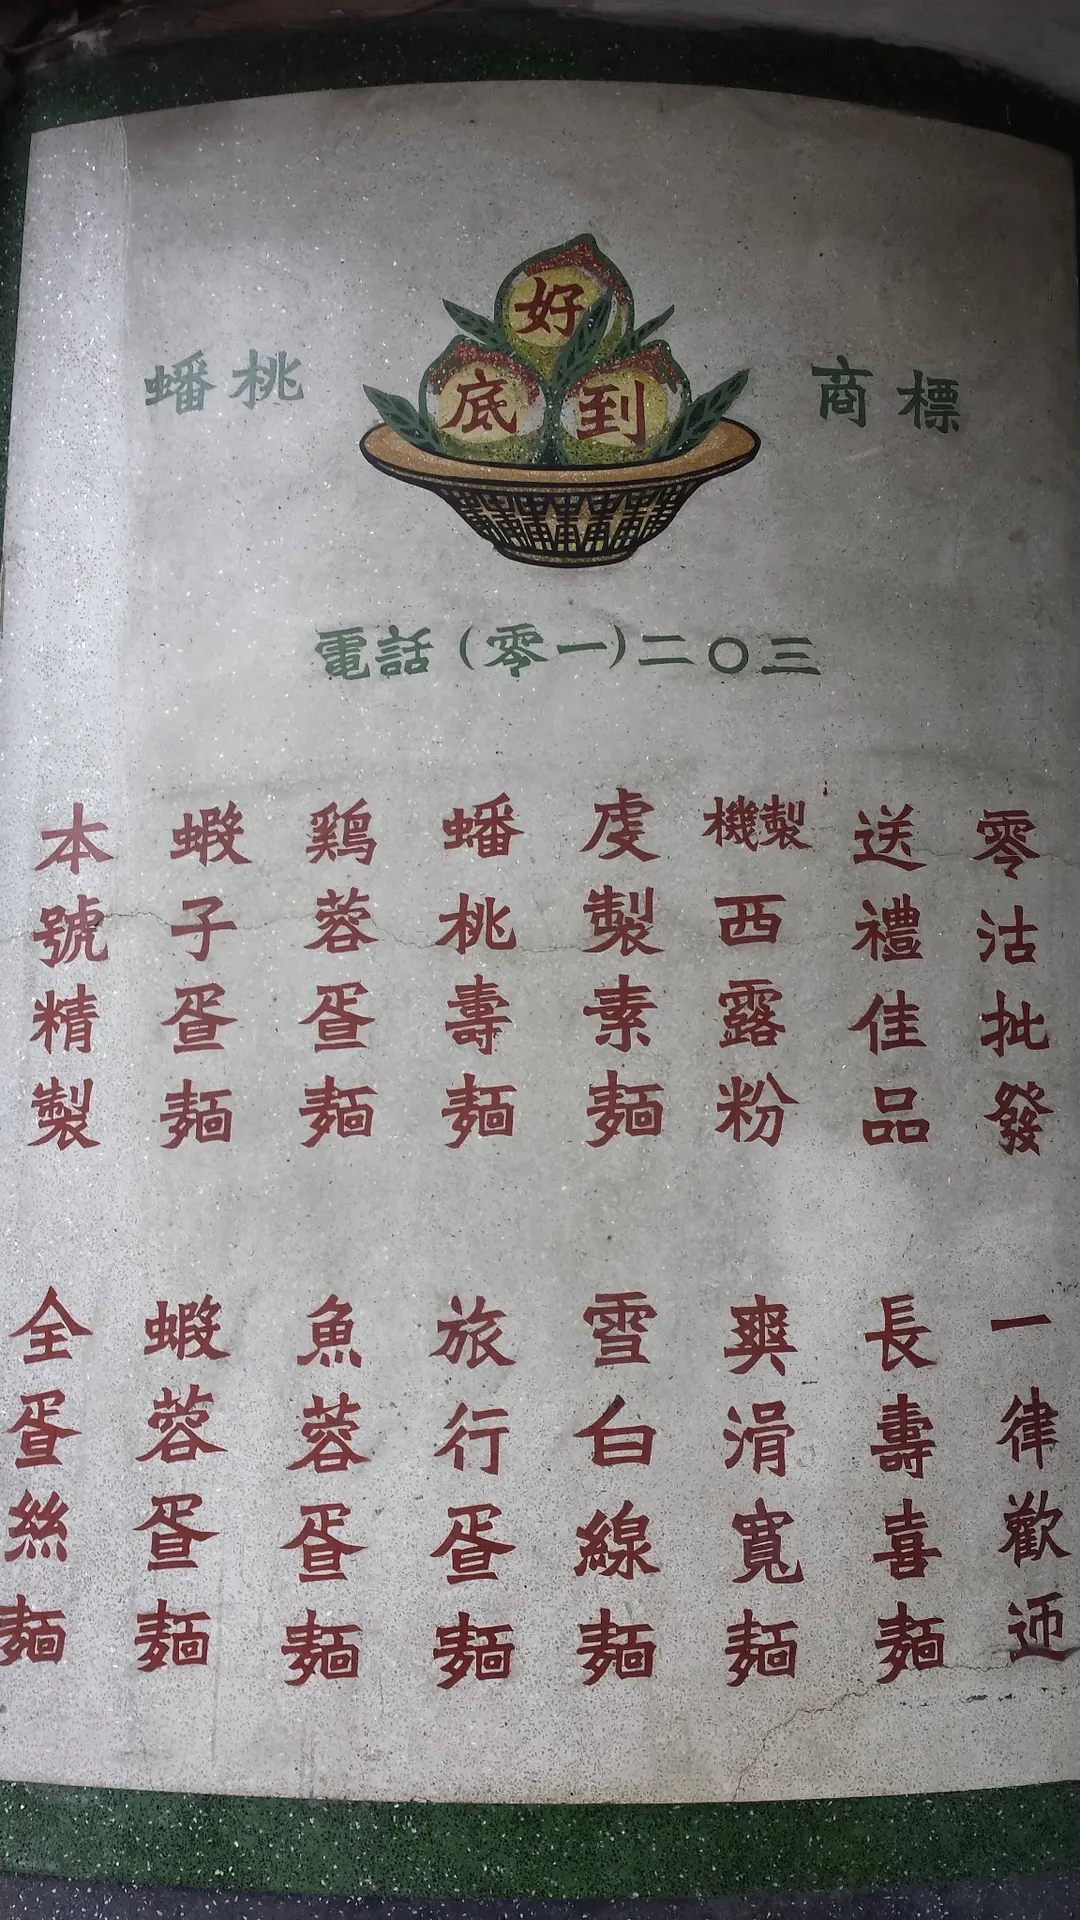 好
到底
蟠桃 商標
電話(零一)二〇三
本號精製
蝦子蛋麵
鷄蓉蛋麵
蟠桃壽麵
虔製素麵
機製西露粉
送禮佳品
零沽批發
全蛋絲麵
蝦蓉蛋麵
魚蓉蛋麵
旅行蛋麵
雪白線麵
爽滑寬麵
長壽喜麵
一律歡迎